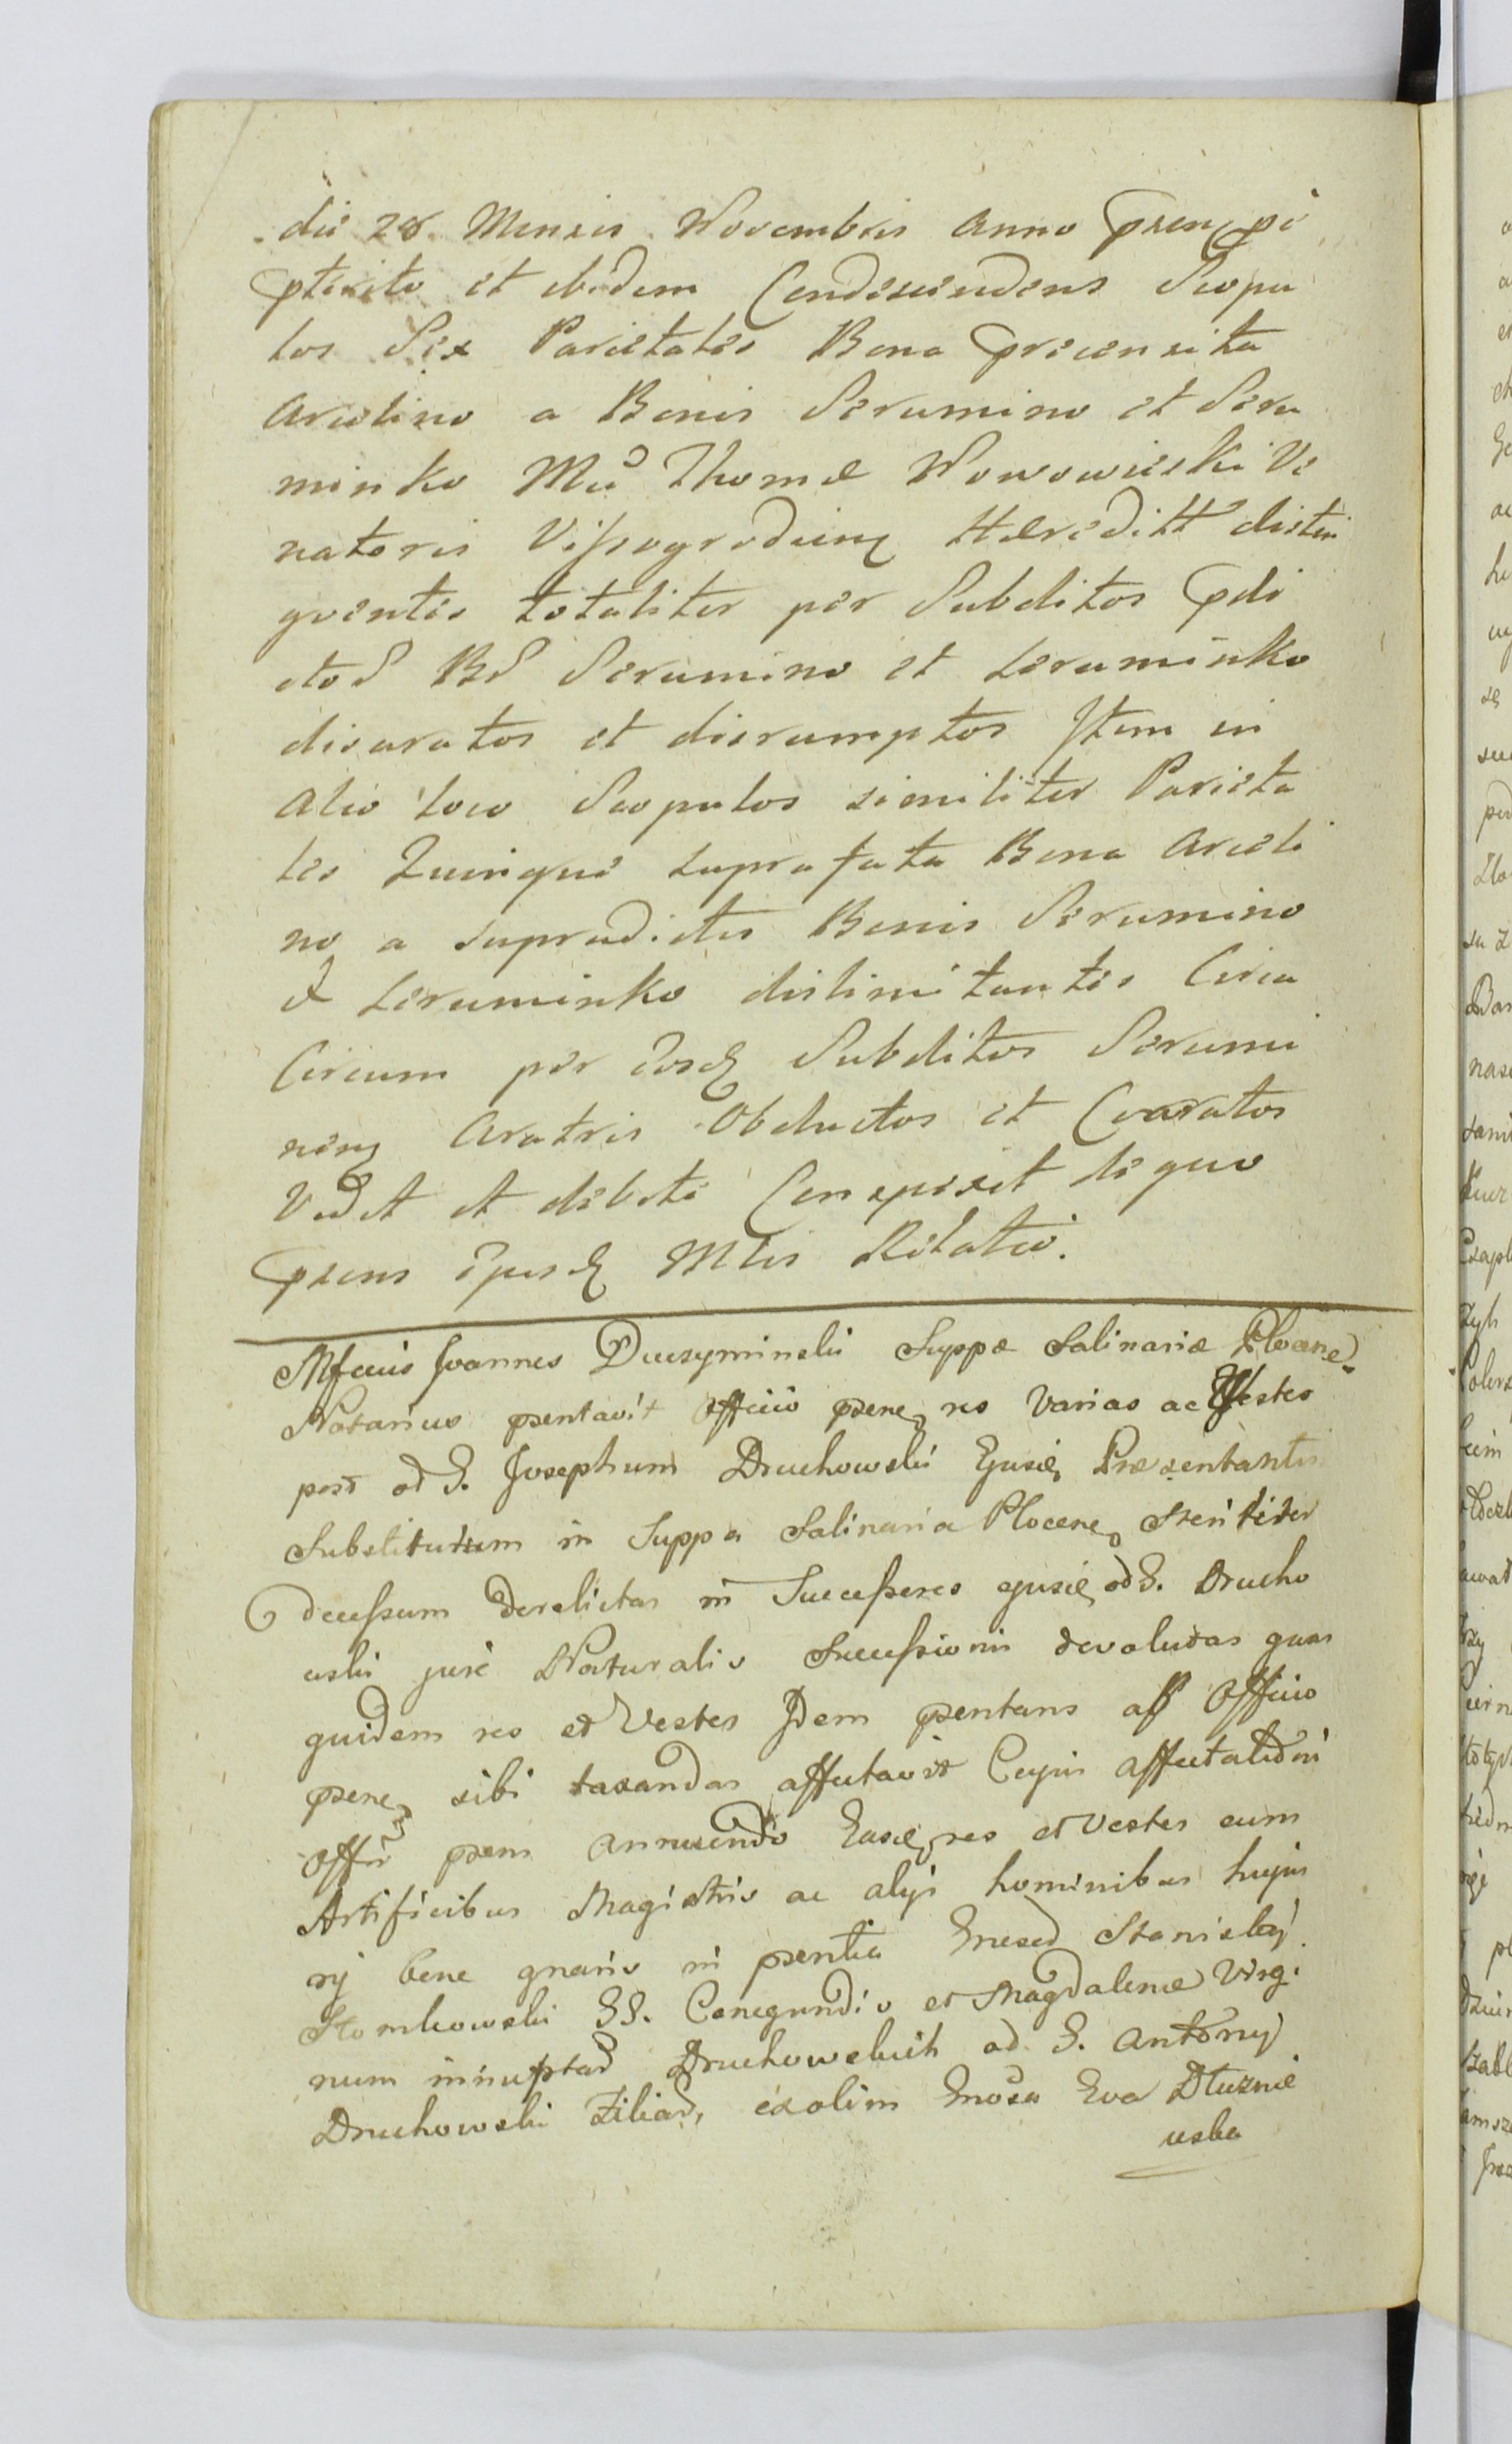 die 28 Mensis Novembris Anno praen pr
pterito et ibidem Condescendens Scopu
los Sex Parietales Bona praecensita
Arcelino a Bonis Serumino et Seru
minko Mci Thomae Nowowieski Ve
natoris Vissogrodien Haereditt distin
gventes totaliter per Subditos pdi
ctoR BR Serumino et Seruminko
disaratos et disrumptos Item in
Alio loco Scopulos similiter Parieta
les Quinque suprafata Bona Arceli
no a supradictis Bonis Serumino
et Seruminko dislimitantes Circa
Circum per Eosd Subditos Serumi
nen Aratris Obductos et Coaratos
Vidit et debite Conspexit de quo
praens Ejusd Mtis Relatio.
Mfcus Joannes Duczyminski Suppae Salinariae Plocane
Notarius psentavit Officio psen res Varias ac Vestes
post od G. Josephum Druchowski Ejusd Praesentantis
Substitutum in Suppa Salinaria Plocen Steriliter
decessum derelictas in Successores ejusd od G. Drucho
wski jure Naturalis Successionis devolutas quas
quidem res et Vestes Idem psentans ab Officio
psen sibi taxandas affectavit Cujus affectationi
Offm psens annuendo Easd res et Vestes cum
Artificibus Magistris ac alijs hominibus hujus
rei bene gnaris in psentia Gnesod Stanislai
Stomkowski GG. Cunegundis et Magdalenae Virgi
num innuptaR Druchowskich od G. Antonij
Druchowski FiliaR, ex olim Gnosa Eva Dłuznie
wska